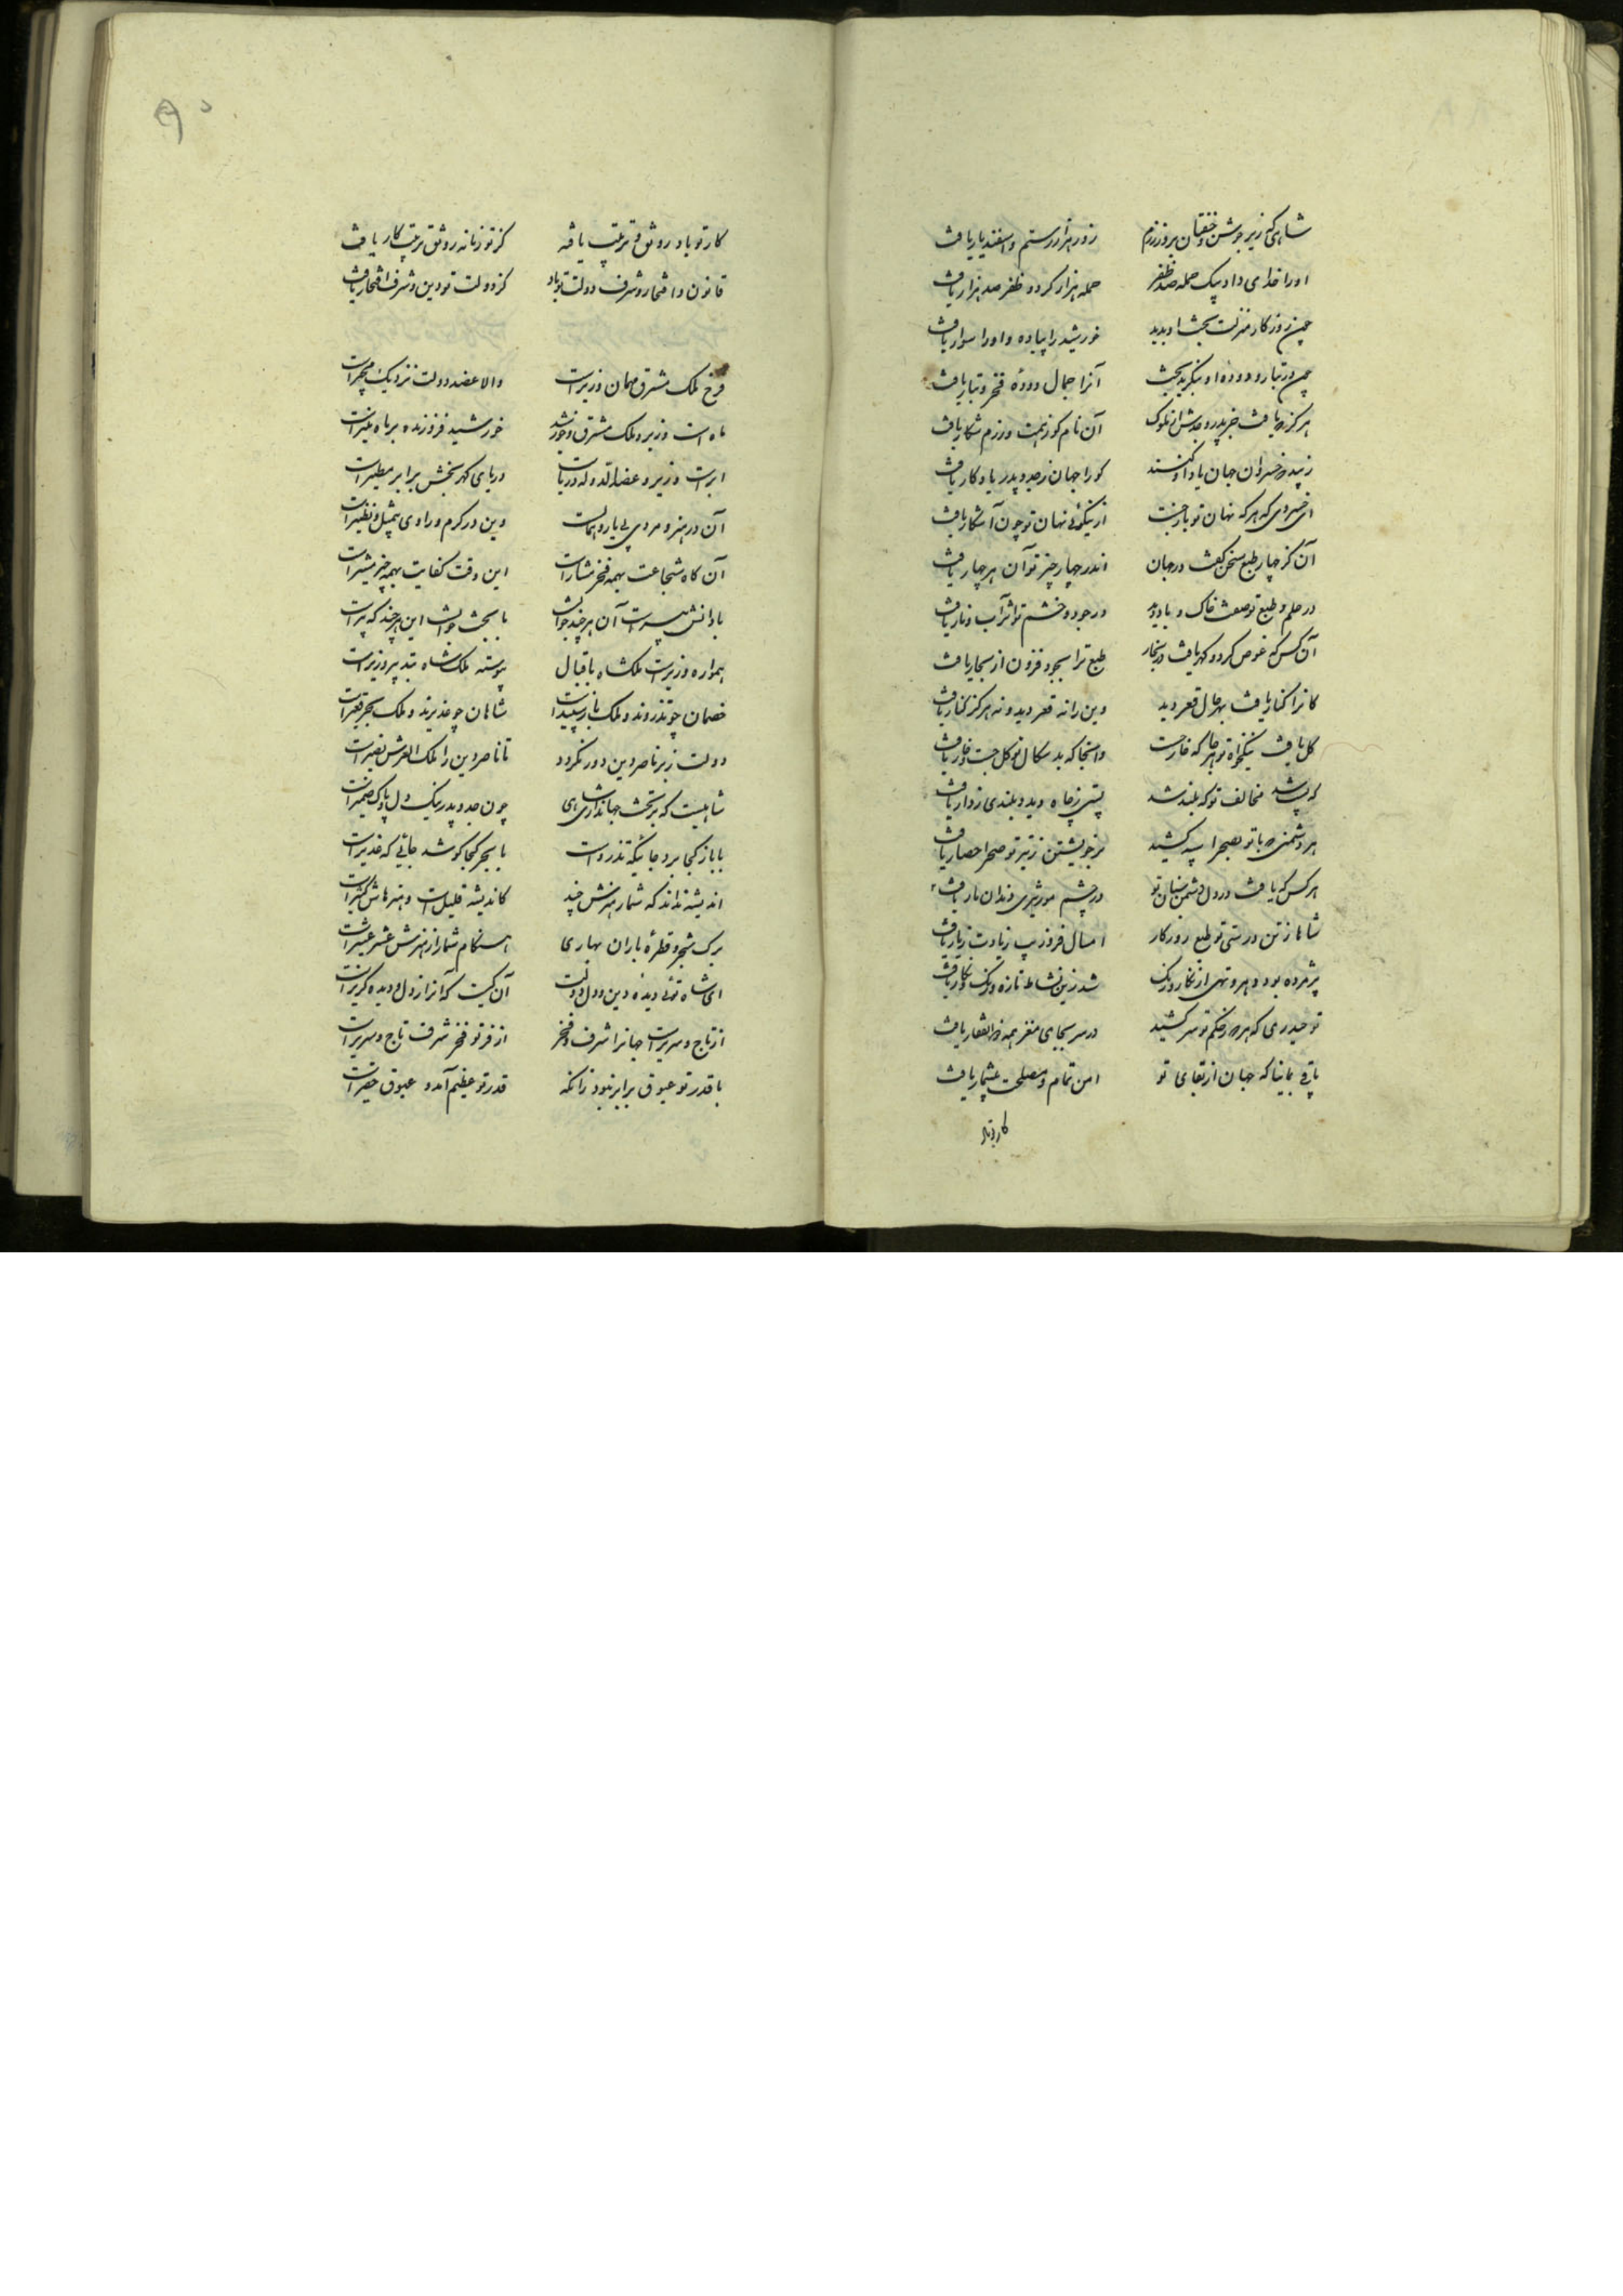 شاهی که زیر جوشن و خفتان بروز رزم زور هزار رستم و اسفندیار یافت
او را خدای داد بیک حمله صد ظفر حمله هزار کرد و ظفر صد هزار یافت
چون روزکار منزلت بخت او بدید خورشید را پیاده و او را سوار یافت
چون در تبار و دوده او بنکرید بخت آنرا جمال دوده و فخر تبار یافت
هرکز که یافت جز پدر و جدش از ملوک آن نام کو ز بزم و رزم شکار یافت
زیبد که خسروان جهان یاد او کنند کو را جهان ز جد و پدر یادکار یافت
ای خسروی که هر که نهان تو بازجست از نیکوئی نهان تو چون آشکار یافت
آن کز چهار طبع سخن کفت در جهان اندر چهار چیز تو آن هر چهار یافت
در حلم و طبع تو صفت خاک و باد دید در جود و خشم تو اثر آب و نار یافت
آن کس که غوص کرد و کهر یافت در بحار طبع ترا بجود فزون از بحار یافت
کانرا کنار یافت بهر حال و قعر دید وین را نه قعر دید و نه هرکز کنار یافت
کل یافت نیکخواه تو هر جا که خار جست وانجا که بدسکال تو کل جست خار یافت
که پست شد مخالف تو که بلند شد پستی ز چاه دید و بلندی ز دار یافت
هر دشمنی که با تو بصحرا سپه کشید بر خویشتن ز تیر تو صحرا حصار یافت
هر کس که یافت در دل دشمن سنان تو در چشم مور شیری و دندان مار یافت
شاها ز تن درستی تو طبع روزکار امسال فر و زیب زیادت ز پار یافت
پژمرده بود دهر و تهی از نکار و رنک شد زین نشاط تازه و رنک و نکار یافت
تو حیدری که هر که ز حکم تو سر کشید در سر بجای مغز همه ذوالفقار یافت
باقی بمانیا که جهان از بقای تو امن تمام و مصلحت بیشمار یافت
کار تو باد
کار تو باد رونق و ترتیب یافته کز تو زمانه رونق و ترتیب کار یافت
قانون و افتخار و شرف دولت تو باد کز دولت تو دین و شرف افتخار یافت
فرخ ملک مشرق مهمان وزیرست والا عضد دولت نزدیک مجیرست
ماه است وزیر و ملک مشرق خورشید خورشید فروزنده بر ماه منیرست
ابرست وزیر و عضدالدوله دریاست دریای کهربخش برابر مطیرست
آن در هنر و مردی بی یار و همالست وین در کرم و رادی بی مثل و نظیرست
آن کاه شجاعت بهمه فخر مشارست این وقت کفایت بهمه چیز مشیرست
با دانش پیرست آن هر چند جوانست با بخت جوانست این هر چند که پیرست
همواره وزیرست ملکشاه باقبال پیوسته ملکشاه بتدبیر وزیرست
خصمان چو تذروند و ملک باز سپیدست شاهان چو غدیرند و ملک بحر قعیرست
دولت ز بر ناصر دین دور نکردد تا ناصر دین را ملک العرش نصیرست
شاهیست که بر تخت جهانداری و شاهی چون جد و پدر نیک دل و پاک ضمیرست
با باز کجا پرد جائیکه تذروست با بحر کجا کوشد جائی که غدیرست
اندیشه نداند که شمار هنرش چند کاندیشه قلیل است و هنرهاش کثیرست
برک شجر و قطره باران بهاری هنکام شمار از هنرش عشر عشیرست
ای شاه توئی دیده دین و دل دولت آن کیست که آنرا ز دل و دیده کزیرست
از تاج و سریرست جهانرا شرف و فخر از فر تو فخر و شرف تاج و سریرست
با قدر تو عیوق برابر نبود زانکه قدر تو عظیم آمد و عیوق حقیرست